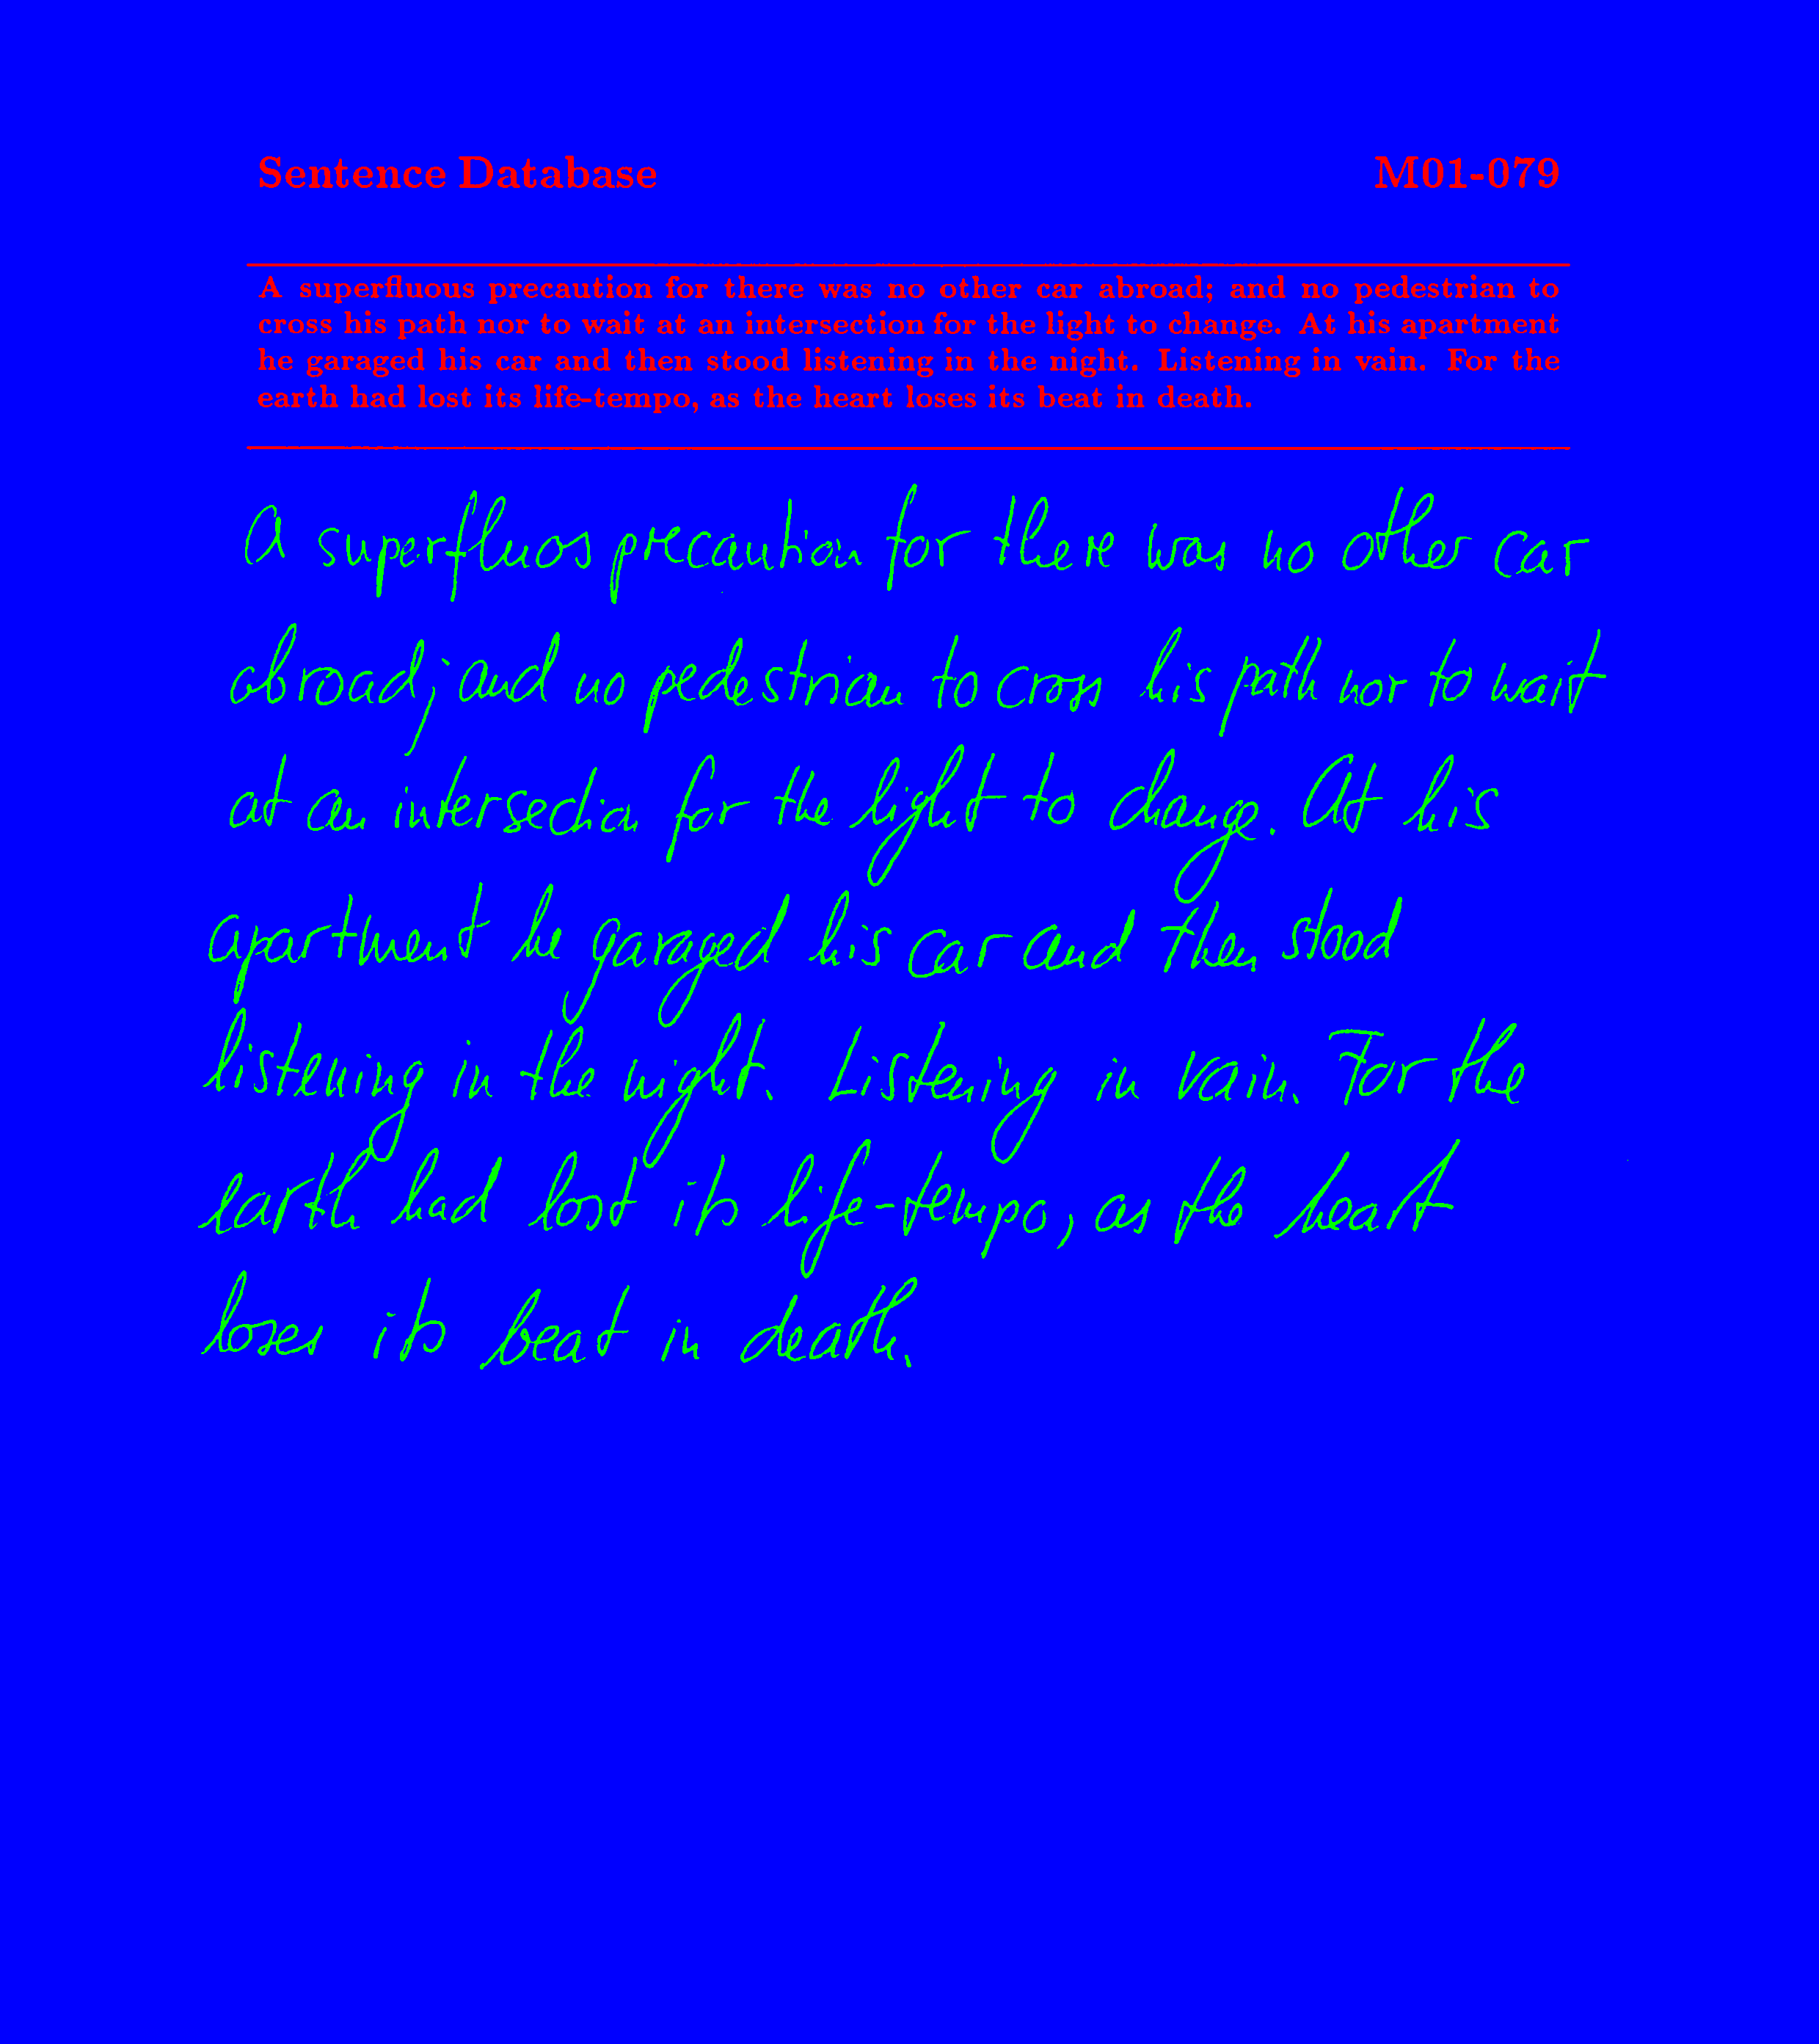 Sentence Database M01-079
A superfluous precaution for there was no other car abroad; and no pedestrian to
cross his path nor to wait at an intersection for the light to change. At his apartment
he garaged his car and then stood listening in the night. Listening in vain. For the
earth had lost its life-tempo, as the heart loses its beat in death.
A superfluos precaution for there was no other car
abroad; and no pedestrian to cross his path nor to wait
at an intersection for the light to change. At his
apartment he garaged his car and then stood
listening in the night. Listening in vain. For the
earth had lost its life-tempo, as the heart
loses its beat in death.